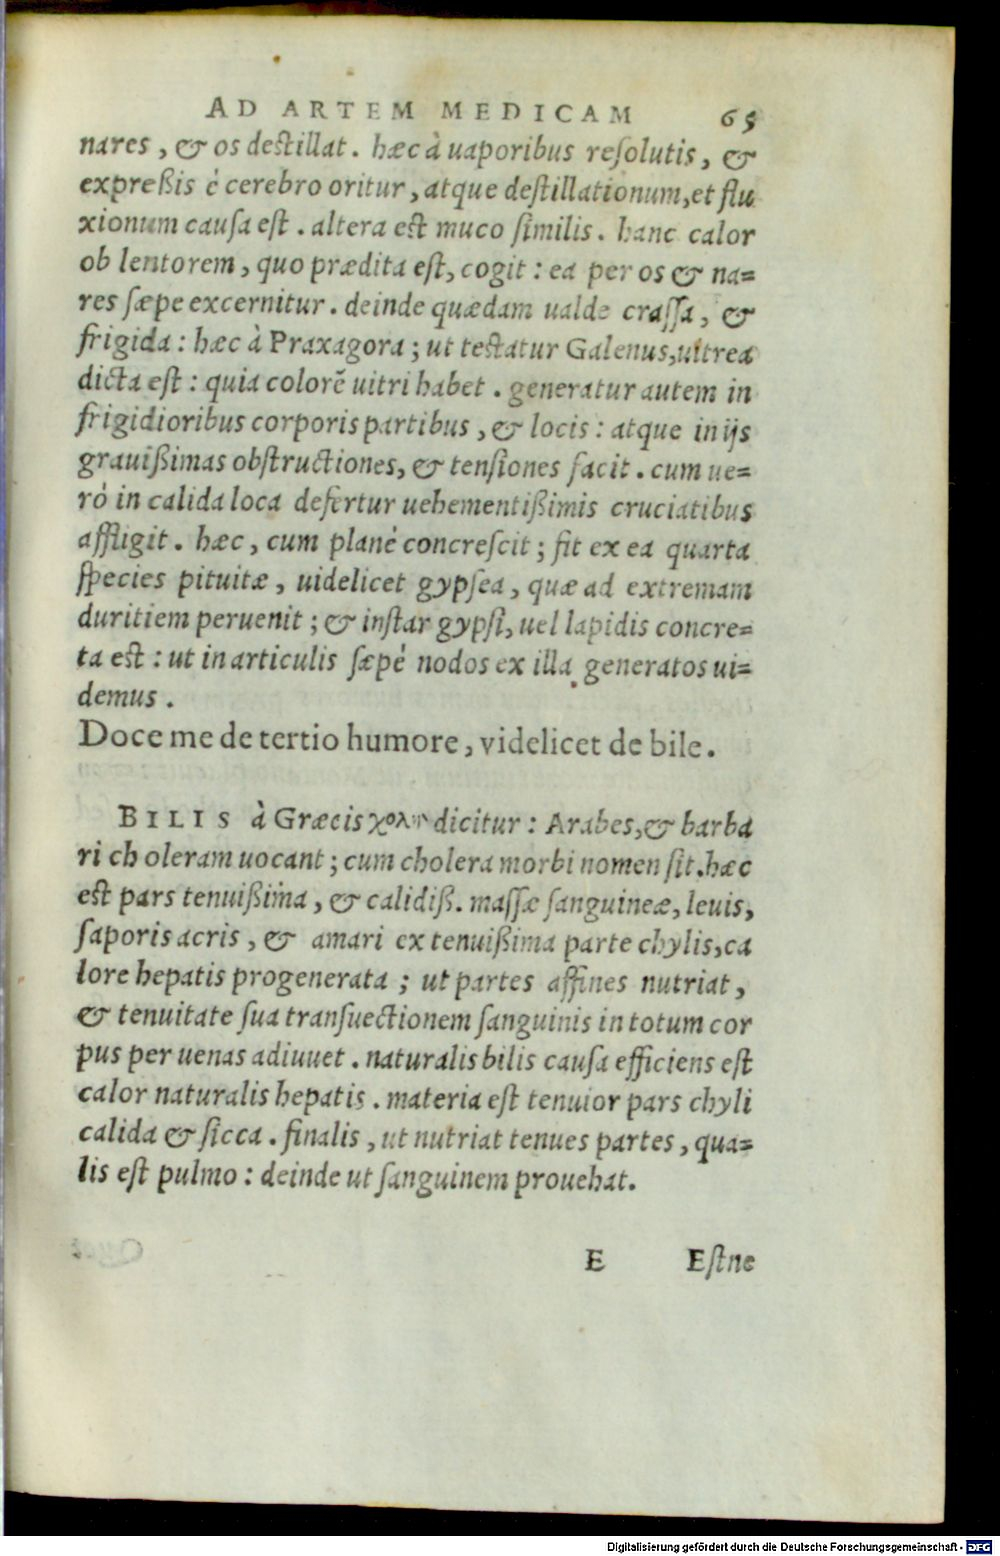 AD ARTEM MEDICAM 65
nares, & os destillat. hæc à uaporibus resolutis, &
expreßis é cerebro oritur, atque destillationum, et flu
xionum causa est. altera est muco similis. hanc calor
ob lentorem, quo prædita est, cogit: ea per os & na=
res sæpe excernitur. deinde quædam ualde crassa, &
frigida: hæc à Praxagora; ut testatur Galenus, uitrea
dicta est: quia colorē uitri habet. generatur autem in
frigidioribus corporis partibus, & locis: atque in ijs
grauißimas obstructiones, & tensiones facit. cum ue=
ró in calida loca defertur uehementißimis cruciatibus
affligit. hæc, cum plané concrescit; fit ex ea quarta
species pituitæ, uidelicet gypsea, quæ ad extremam
duritiem peruenit; & instar gypsi, uel lapidis concre=
ta est: ut in articulis sæpé nodos ex illa generatos ui=
demus.
Doce me de tertio humore, videlicet de bile.
BILIS à Græcis dicitur: Arabes, & barba
ri choleram uocant; cum cholera morbi nomen sit. hæc
est pars tenuißima, & calidiß. massæ sanguineæ, leuis,
saporis acris, & amari ex tenuißima parte chylis, ca
lore hepatis progenerata; ut partes affines nutriat,
& tenuitate sua transuectionem sanguinis in totum cor
pus per uenas adiuuet. naturalis bilis causa efficiens est
calor naturalis hepatis. materia est tenuior pars chyli
calida & sicca. finalis, ut nutriat tenues partes, qua=
lis est pulmo: deinde ut sanguinem prouehat.
E Estne
Digitalisierung gefördert durch die Deutsche Forschungsgemeinschaft - DFG